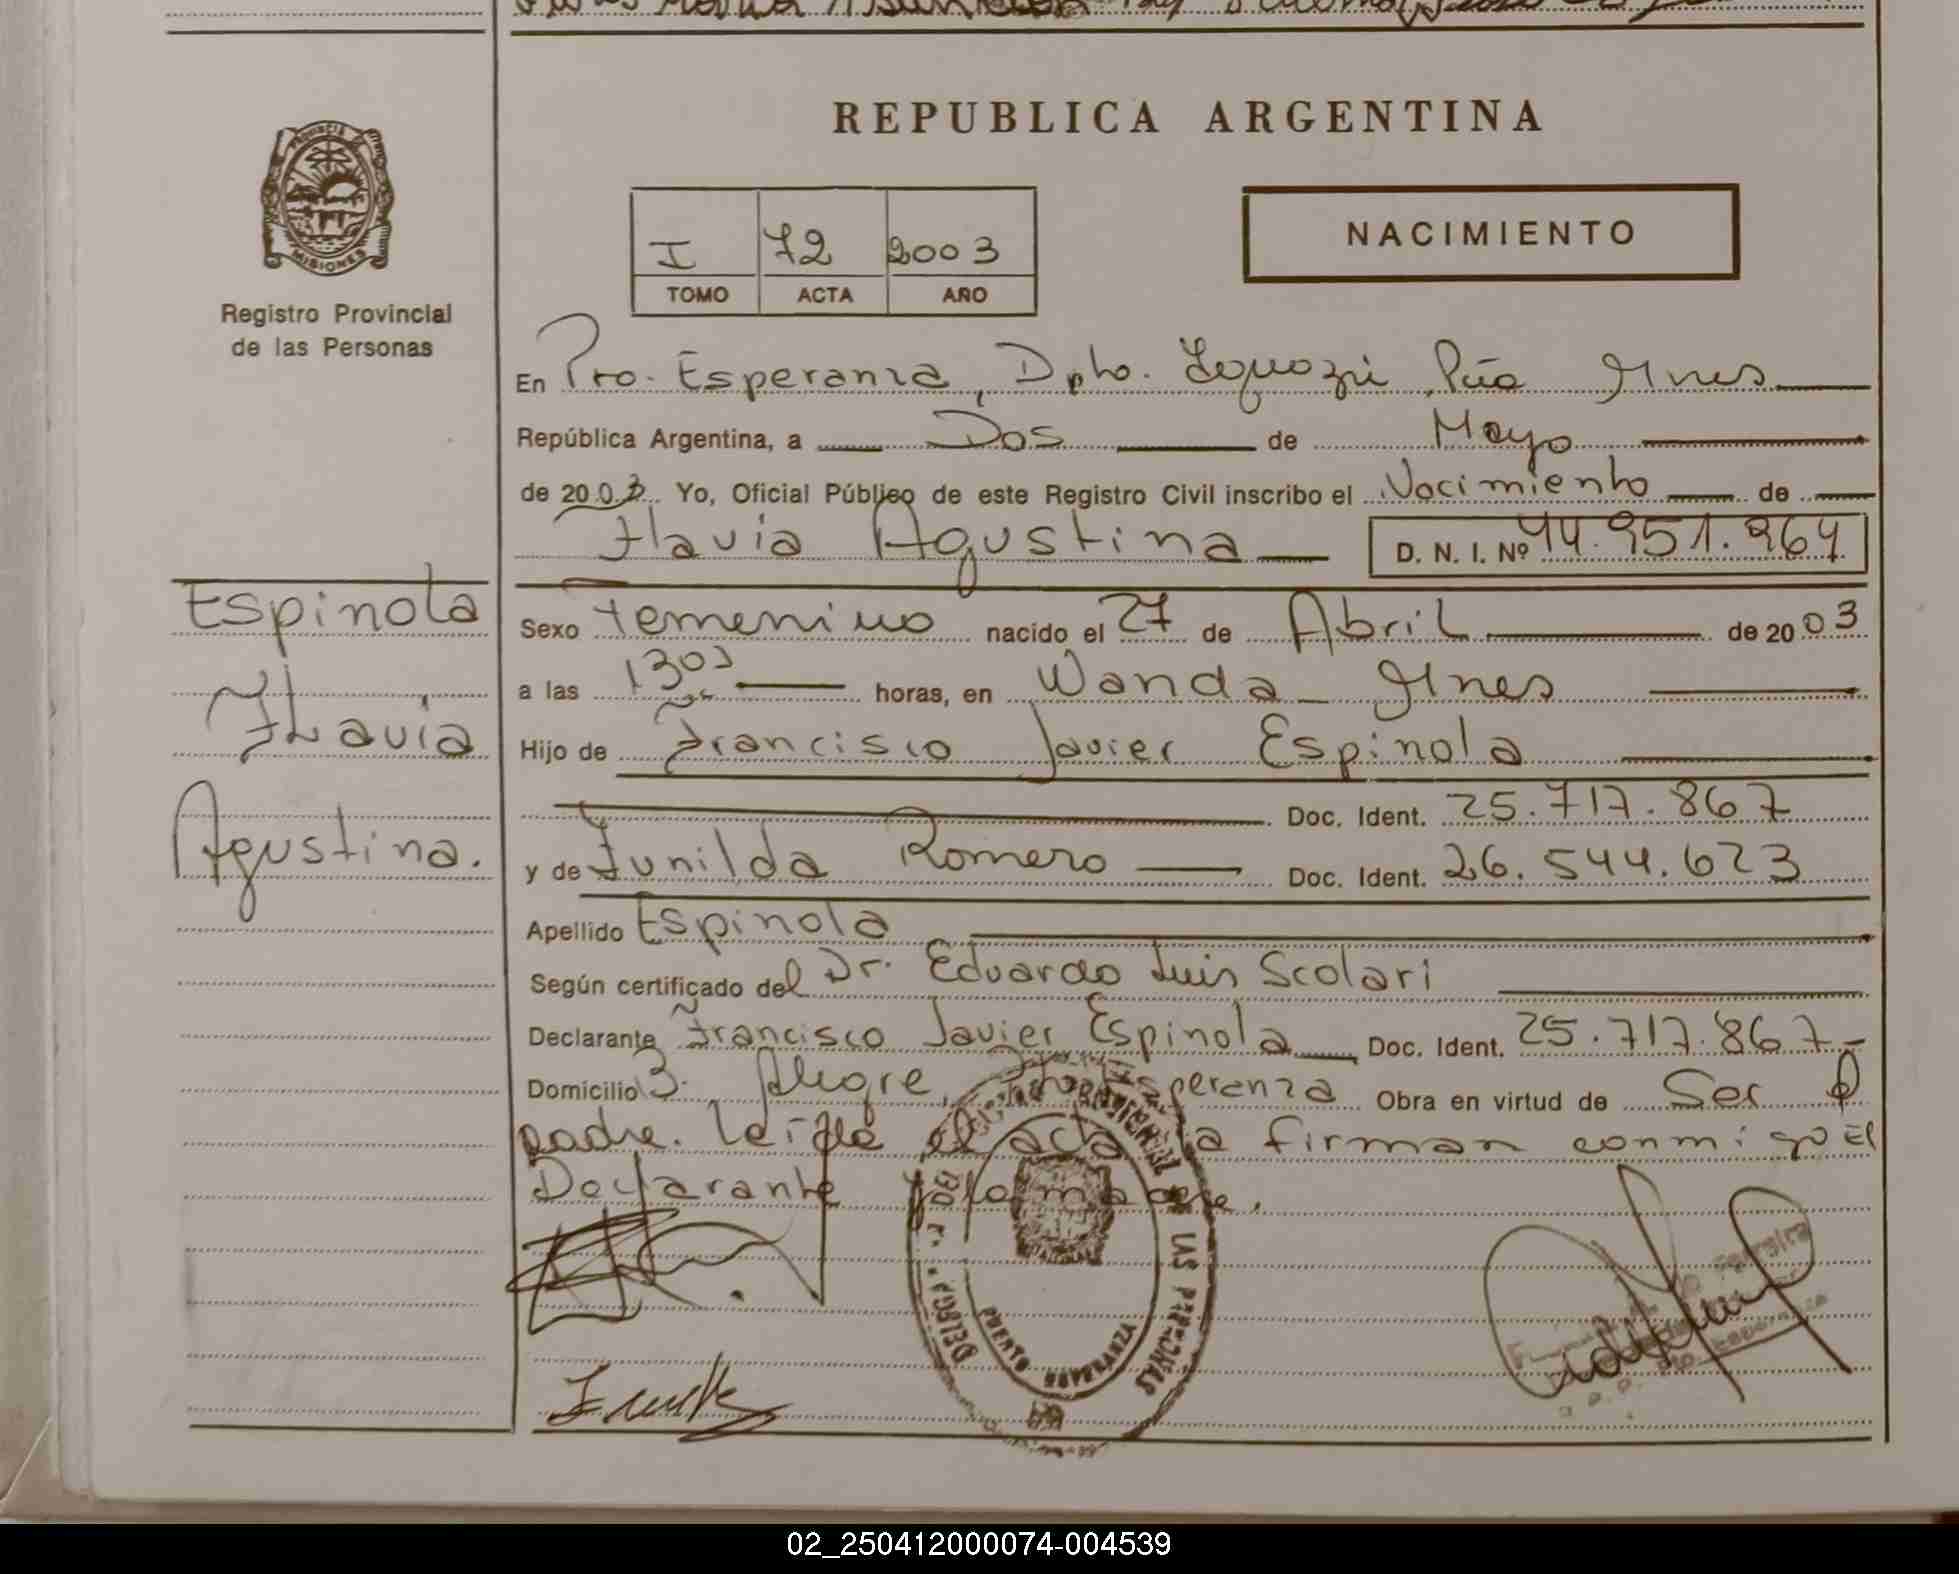 REPUBLICA ARGENTINA
PROVINCIA
MISIONES
Registro Provincial
de las Personas
I 72 2003
TOMO ACTA AÑO
NACIMIENTO
En Pto. Esperanza, Dpto. Iguazú Pcia Mnes
República Argentina, a Dos de Mayo
de 2003 Yo, Oficial Público de este Registro Civil inscribo el Nacimiento de
Flavia Agustina D. N. I. Nº 44.951.964
Espinola
Flavia
Agustina.
Sexo Femenino nacido el 27 de Abril de 2003
a las 1303 horas, en Wanda Mnes
Hijo de Francisco Javier Espinola
Doc. Ident. 25.717.867
y de Funilda Romero Doc. Ident. 26.544.623
Apellido Espinola
Según certificado del Dr. Eduardo Luis Scolari
Declarante Francisco Javier Espinola Doc. Ident. 25.717.867
Domicilio B. Alegre, Pto Esperanza Obra en virtud de Ser el
padre. Leída el acta la firman conmigo El
Declarante y la madre.
LAS PERSONAS
PUERTO ESPERANZA
Ferreira
02_250412000074-004539